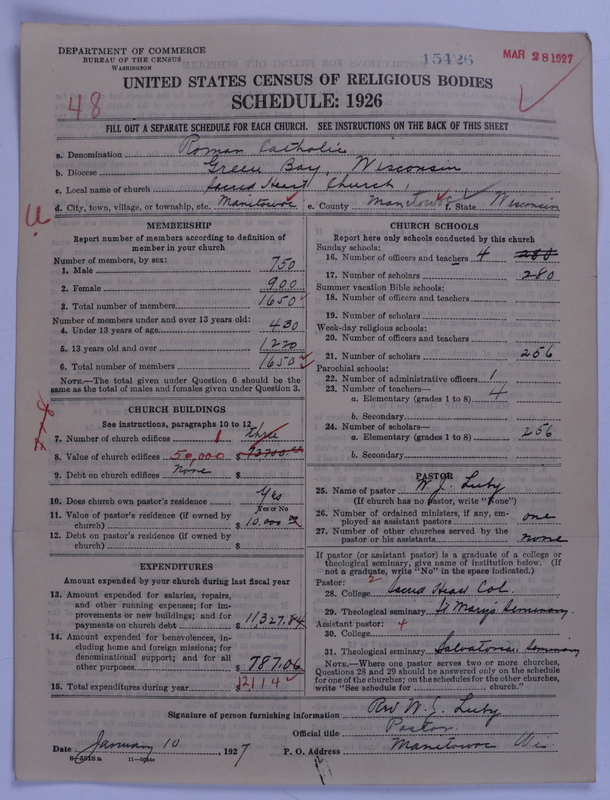 DEPARTMENT OF COMMERCE
BUREAU OF THE CENSUS
WASHINGTON
15426
MAR 28 1927
UNITED STATES CENSUS OF RELIGIOUS BODIES
48
SCHEDULE: 1926
FILL OUT A SEPARATE SCHEDULE FOR EACH CHURCH. SEE INSTRUCTIONS ON THE BACK OF THIS SHEET
a. Denomination Roman Catholic
b. Diocese Green Bay, Wisconsin
c. Local name of church Sacred Heart Church
d. City, town, village, or township, etc. Manitowoc e. County Manitowoc f. State Wisconsin
MEMBERSHIP
Report number of members according to definition of
member in your church
Number of members, by sex:
1. Male 750
2. Female 900
3. Total number of members 1650
Number of members under and over 13 years old:
4. Under 13 years of age 430
5. 13 years old and over 1220
6. Total number of members 1650
NOTE.—The total given under Question 6 should be the
same as the total of males and females given under Question 3.
CHURCH BUILDINGS
See instructions, paragraphs 10 to 12
7. Number of church edifices 1 three
8. Value of church edifices 50,000 $
9. Debt on church edifices none
10. Does church own pastor's residence Yes
Yes or No
11. Value of pastor's residence (if owned by
church) $ 10.000
12. Debt on pastor's residence (if owned by
church) $
EXPENDITURES
Amount expended by your church during last fiscal year
13. Amount expended for salaries, repairs,
and other running expenses; for im-
provements or new buildings; and for
payments on church debt $ 11,327.84
14. Amount expended for benevolences, in-
cluding home and foreign missions; for
denominational support; and for all
other purposes $ 787.06
15. Total expenditures during year $ 12114
CHURCH SCHOOLS
Report here only schools conducted by this church
Sunday schools:
16. Number of officers and teachers 4 280
17. Number of scholars 280
Summer vacation Bible schools:
18. Number of officers and teachers
19. Number of scholars
Week-day religious schools:
20. Number of officers and teachers
21. Number of scholars 256
Parochial schools:
22. Number of administrative officers 1
23. Number of teachers—
a. Elementary (grades 1 to 8) 4
b. Secondary
24. Number of scholars—
a. Elementary (grades 1 to 8) 256
b. Secondary
PASTOR
25. Name of pastor W. J. Luby
(If church has no pastor, write "None")
26. Number of ordained ministers, if any, em-
ployed as assistant pastors one
27. Number of other churches served by the
pastor or his assistants none
If pastor (or assistant pastor) is a graduate of a college or
theological seminary, give name of institution below. (If
not a graduate, write "No" in the space indicated.)
Pastor: 2
28. College Sacred Heart Col.
29. Theological seminary St Marys Seminary.
Assistant pastor: 4
30. College
31. Theological seminary Salvatorian Seminary
NOTE.—Where one pastor serves two or more churches,
Questions 28 and 29 should be answered only on the schedule
for one of the churches; on the schedules for the other churches,
write "See schedule for church."
Signature of person furnishing information Rev W. J. Luby
Official title Pastor
Date January 10 1927 P. O. Address Manitowoc Wis